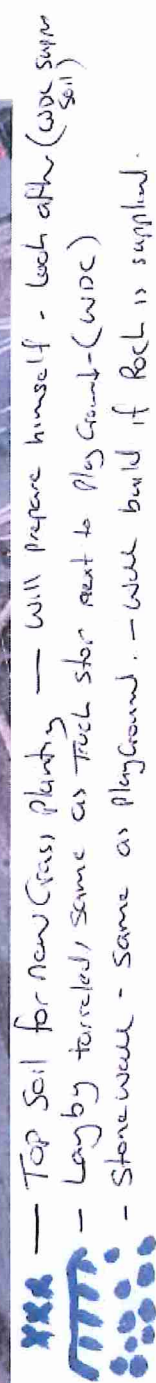 XXX — Top Soil for new Grass Planting — Will prepare himself - Look after (WDC supply soil)
- Layby tarsealed, same as Truck stop next to PlayGround - (WDC)
- Stonewall - same as PlayGround. - Will build if Rock is supplied.